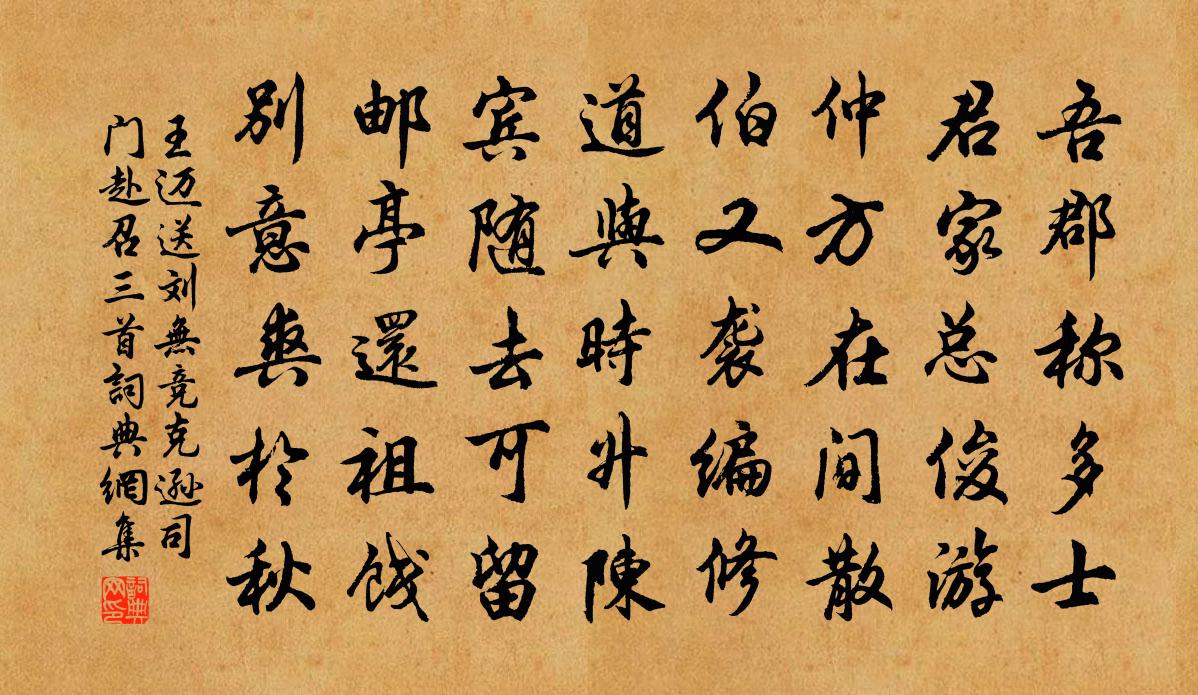 吾郡称多士
君家总俊游
仲方在间散
伯又袭编修
道與時升陳
宾随去可留
邮亭還祖饯
别意爽於秋
王迈送刘無竞克逊司
门赴召三首詞典網集
詞典
网印